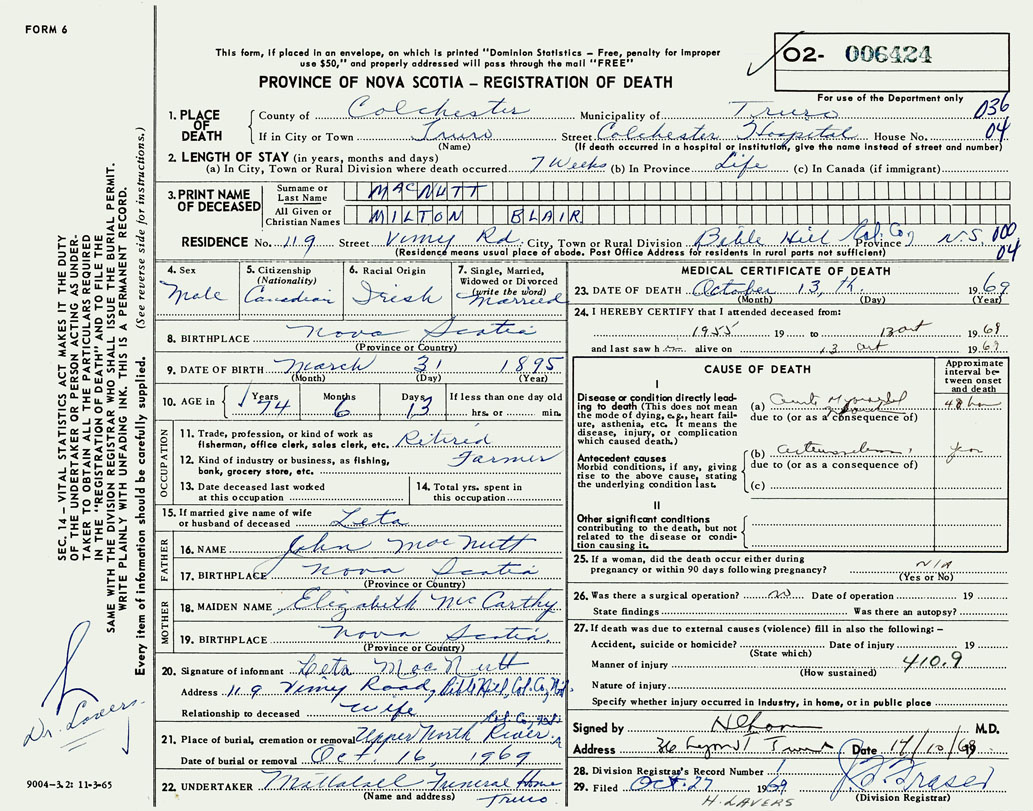 FORM 6
This form, if placed in an envelope, on which is printed "Dominion Statistics – Free, penalty for improper
use $50," and properly addressed will pass through the mail "FREE"
PROVINCE OF NOVA SCOTIA – REGISTRATION OF DEATH
02- 006424
For use of the Department only
1. PLACE OF DEATH County of Colchester Municipality of Truro 036
If in City or Town Truro Street Colchester Hospital House No. 04
(Name) (If death occurred in a hospital or institution, give the name instead of street and number)
2. LENGTH OF STAY (in years, months and days)
(a) In City, Town or Rural Division where death occurred 7 Weeks (b) In Province Life (c) In Canada (if immigrant)
3. PRINT NAME OF DECEASED Surname or Last Name MACNUTT
All Given or Christian Names MILTON BLAIR
RESIDENCE No. 119 Street Vimy Rd. City, Town or Rural Division Bible Hill Col. Co. Province N.S. 000
(Residence means usual place of abode. Post Office Address for residents in rural parts not sufficient) 04
4. Sex Male
5. Citizenship (Nationality) Canadian
6. Racial Origin Irish
7. Single, Married, Widowed or Divorced (write the word) Married
8. BIRTHPLACE Nova Scotia
(Province or Country)
9. DATE OF BIRTH March 31 1895
(Month) (Day) (Year)
10. AGE Years 74 Months 6 Days 13 If less than one day old
hrs. or min.
OCCUPATION
11. Trade, profession, or kind of work as fisherman, office clerk, sales clerk, etc. Retired
12. Kind of industry or business, as fishing, bank, grocery store, etc. Farmer
13. Date deceased last worked at this occupation
14. Total yrs. spent in this occupation
15. If married give name of wife or husband of deceased Leta
FATHER
16. NAME John MacNutt
17. BIRTHPLACE Nova Scotia
(Province or Country)
MOTHER
18. MAIDEN NAME Elizabeth McCarthy
19. BIRTHPLACE Nova Scotia.
(Province or Country)
20. Signature of informant Leta MacNutt
Address 119 Vimy Road, Bible Hill, Col. Co., N.S.
Relationship to deceased Wife
21. Place of burial, cremation or removal Upper North River Col. Co., N.S.
Date of burial or removal Oct. 16, 1969
22. UNDERTAKER Funeral Home
(Name and address) Truro
MEDICAL CERTIFICATE OF DEATH
23. DATE OF DEATH October 13, th. 1969
(Month) (Day) (Year)
24. I HEREBY CERTIFY that I attended deceased from:
1955 19 to 13 oct 1969
and last saw him alive on 13 oct 1969
CAUSE OF DEATH
Approximate interval between onset and death
I
Disease or condition directly leading to death (This does not mean the mode of dying, e.g., heart failure, asthenia, etc. It means the disease, injury, or complication which caused death.)
(a) Acute Myocardial
due to (or as a consequence of)
Antecedent causes
Morbid conditions, if any, giving rise to the above cause, stating the underlying condition last.
(b)
due to (or as a consequence of)
(c)
II
Other significant conditions
contributing to the death, but not related to the disease or condition causing it.
25. If a woman, did the death occur either during pregnancy or within 90 days following pregnancy? N/A
(Yes or No)
26. Was there a surgical operation? no Date of operation 19
State findings Was there an autopsy?
27. If death was due to external causes (violence) fill in also the following: –
Accident, suicide or homicide? Date of injury 19
(State which)
Manner of injury 410.9
(How sustained)
Nature of injury
Specify whether injury occurred in Industry, in home, or in public place
Signed by M.D.
Address Truro Date 14/10/69
28. Division Registrar's Record Number
29. Filed Oct. 27 1969 Fraser
(Division Registrar)
H. LAVERS
SEC. 14 – VITAL STATISTICS ACT MAKES IT THE DUTY
OF THE UNDERTAKER OR PERSON ACTING AS UNDER-
TAKER TO OBTAIN ALL THE PARTICULARS REQUIRED
IN THE "REGISTRATION OF DEATH" AND TO FILE THE
SAME WITH THE DIVISION REGISTRAR WHO SHALL ISSUE THE BURIAL PERMIT.
WRITE PLAINLY WITH UNFADING INK. THIS IS A PERMANENT RECORD.
Every item of information should be carefully supplied. (See reverse side for instructions.)
Dr. Lavers.
9004–3.2: 11-3-65